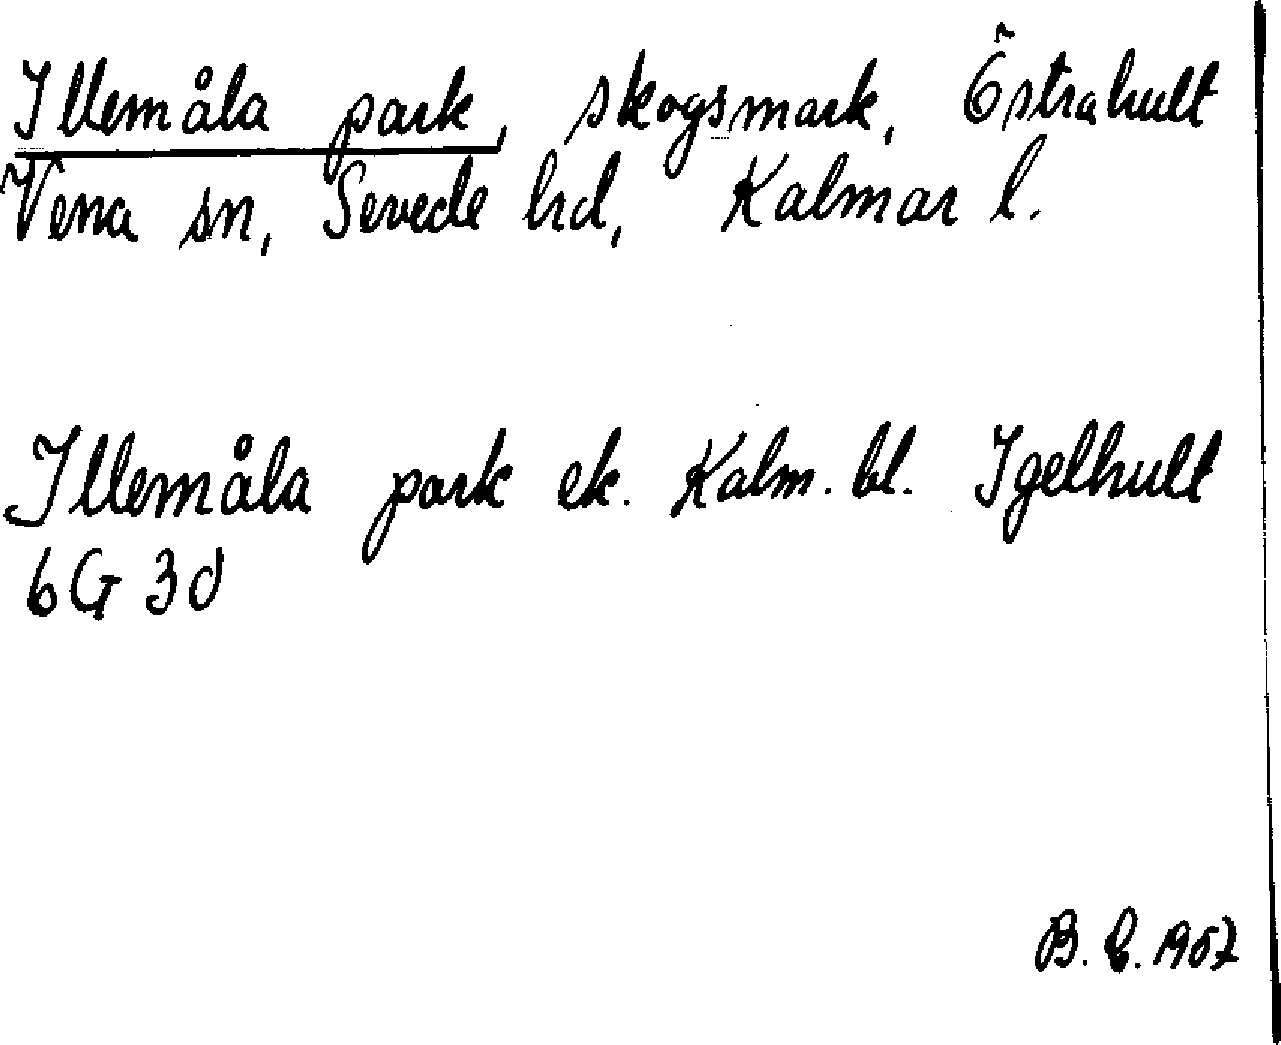 Illemåla park, skogsmark, Östrahult
Vena sn, Sevede hd, Kalmar l.
Illemåla park ek. Kalm. bl. Igelhult
6G 3d
B. 1967